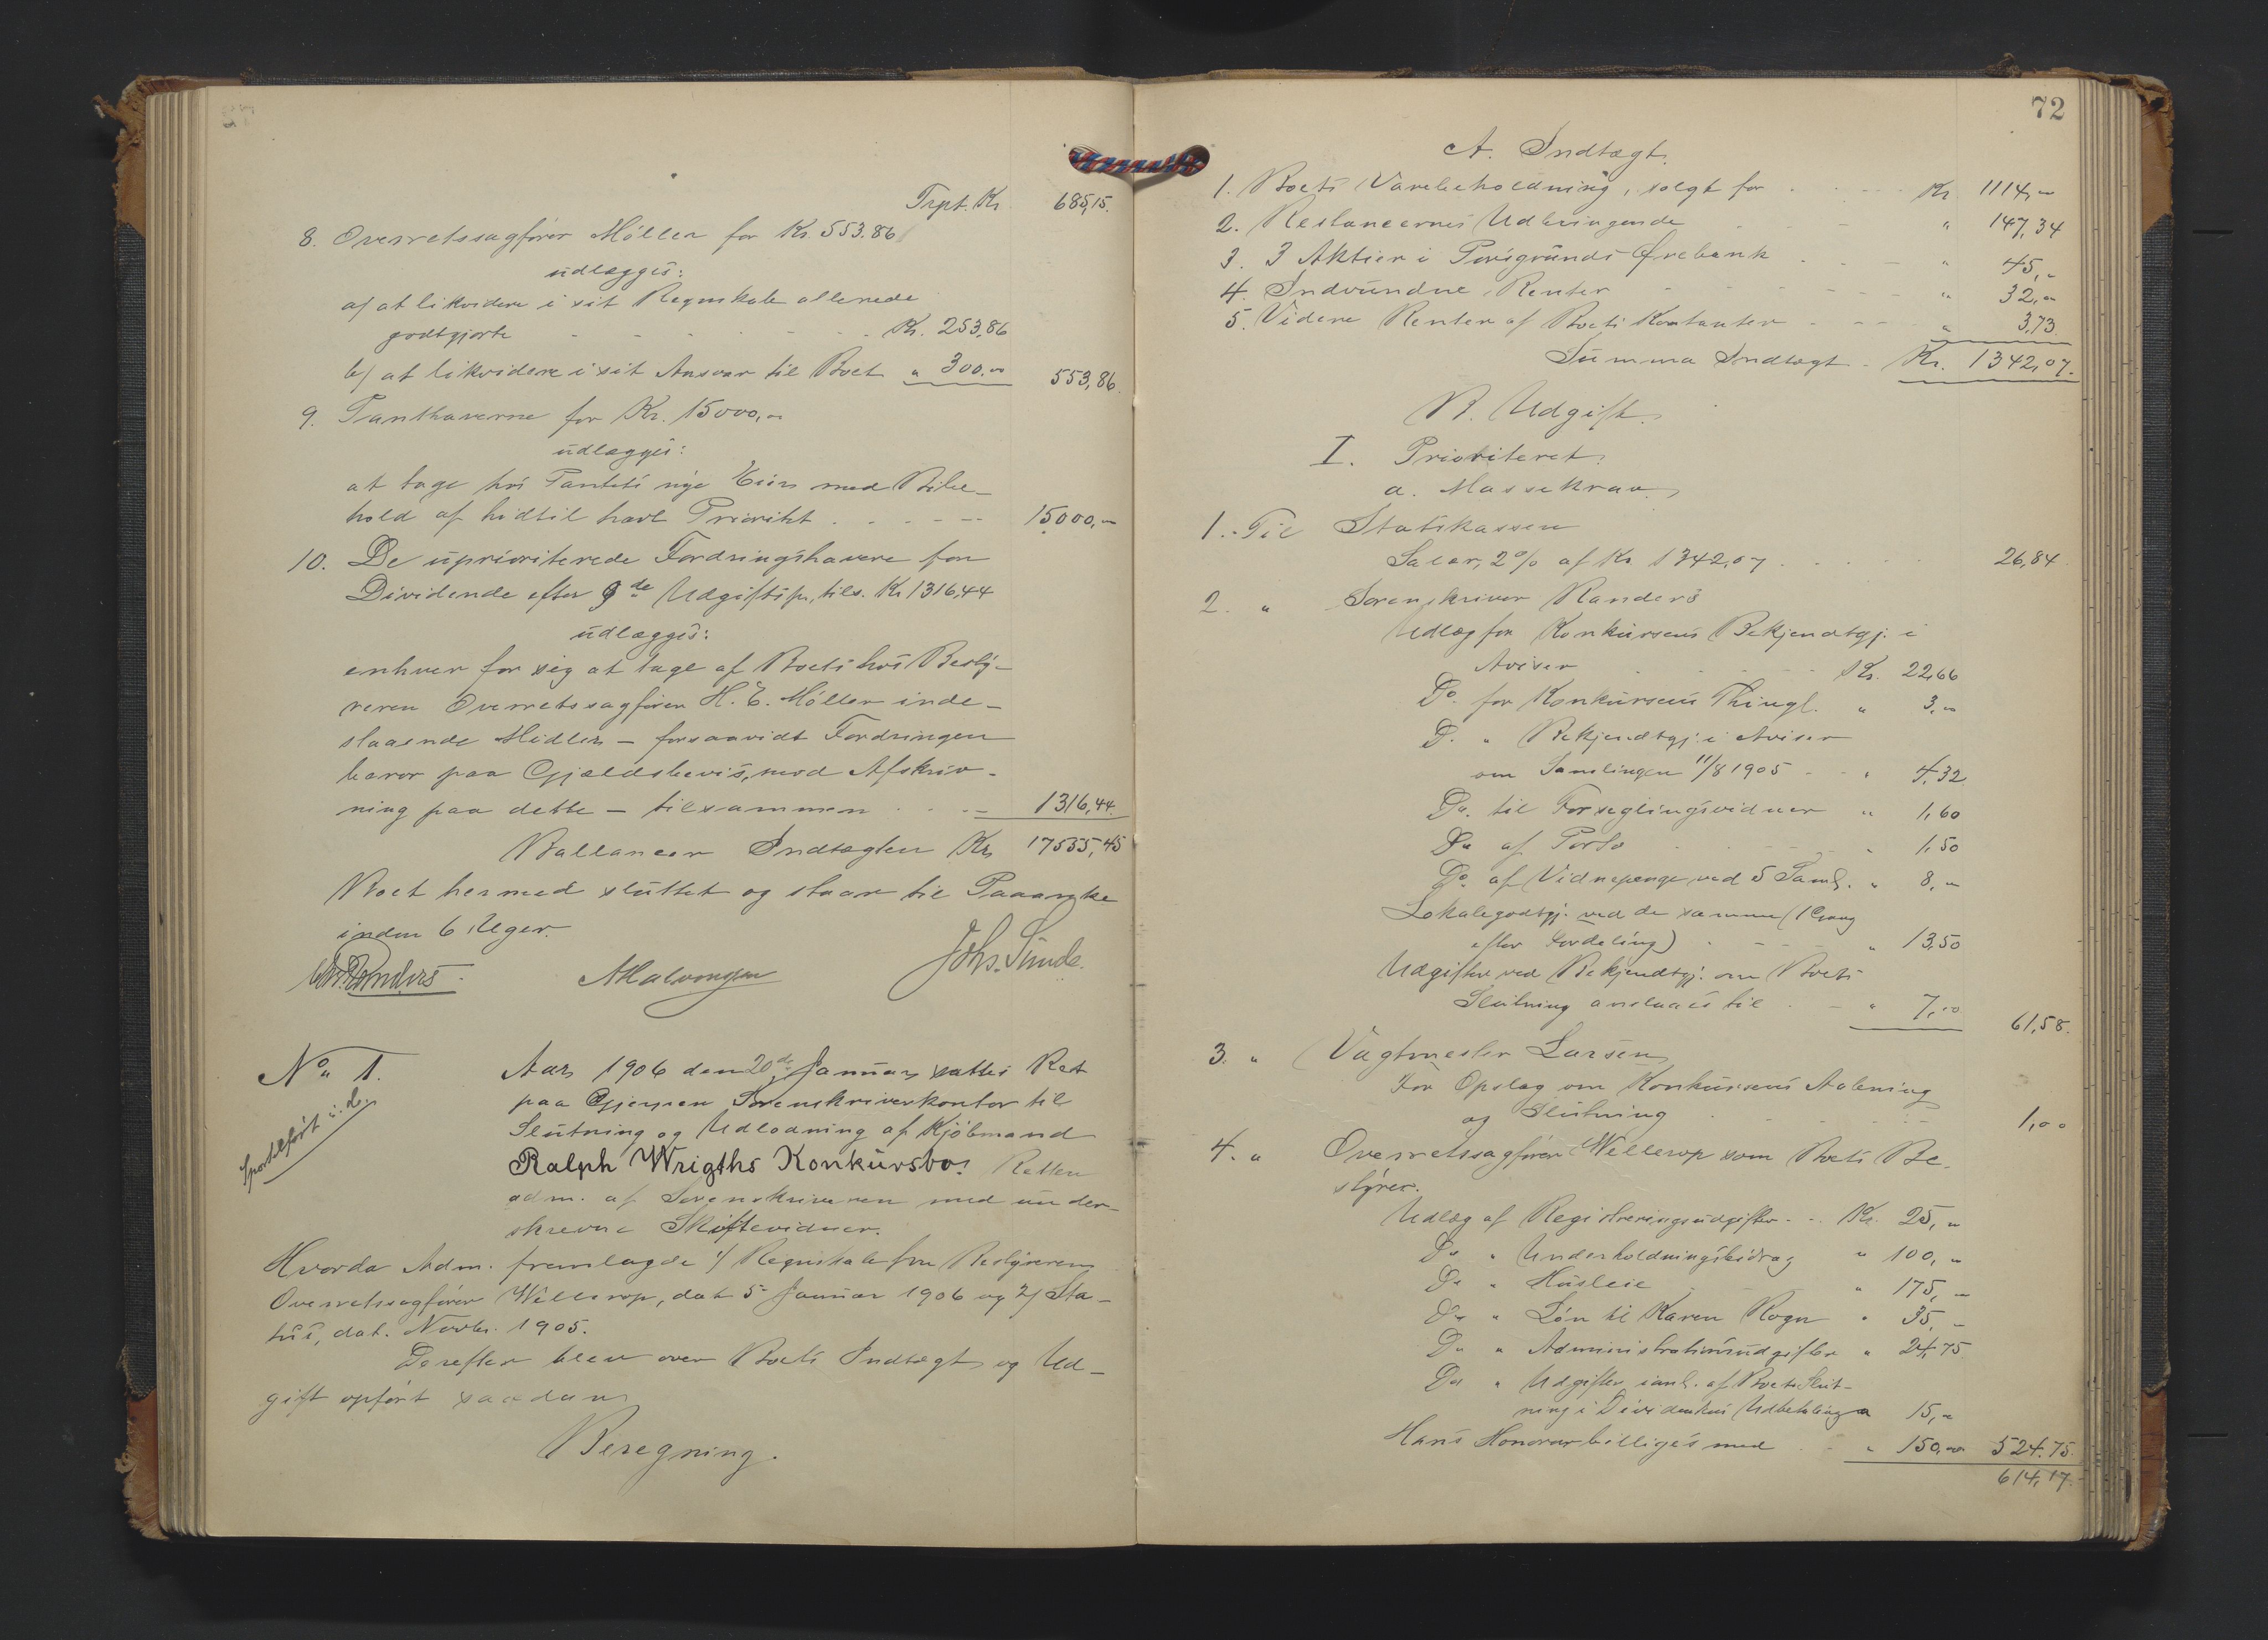 Trpt. Kr. 685,15.
8. Overretssagfører Møller for Kr. 553.86
udlægges:
a/ at likvidere i sit Regnskab allerede
godtgjorte - - - - - Kr. 253,86
b/ at likvidere i sit Ansvar til Boet " 300.00 553,86.
9. Panthaverne for Kr. 15000,-
udlægges:
at tage hos Pantets nye Eier med Bibe-
hold af hidtil havt Prioritet . . - - - 15000,-
10. De uprioriterede Fordringshavere for
Dividende efter 9de Udgiftsp., tils. Kr 1316,44
udlægges:
enhver for sig at tage af Boets hos Besty-
reren Overretssagfører H. E. Møller inde-
staaende Midler - forsaavidt Fordringen
beror paa Gjældsbevis, mod Afskriv-
ning paa dette - tilsammen . . - - 1316,44.
Ballancer Indtægten Kr. 17555,45
Boet hermed sluttet og staar til Paaanke
inden 6 Uger.
Chr. Randers. A Halvorsen Johs. Sunde.
No 1.
Sportelført i.d.
Aar 1906 den 20de Januar sattes Ret
paa Gjerpen Sorenskriverkontor til
Slutning og Udlodning af Kjøbmand
Ralph Wrigths Konkursbo. Retten
adm. af Sorenskriveren med under-
skrevne Skiftevidner.
Hvorda Adm. fremlagde 1/ Regnskab fra Bestyreren
Overretssagfører Willerup, dat 5 Januar 1906 og 2/ Sta-
tus, dat. Novbr. 1905.
Derefter blev over Boets Indtægt og Ud-
gift opført saadan
Beregning.
72
A. Indtægt.
1. Boets Varebeholdning, solgt for . - - - Kr. 1114,-
2. Restancernes Udbringende - - - " 147,34
3. 3 Aktier i Porsgrunds Ørebank . - - " 45,-
4. Indvundne Renter - - - - - " 32,-
5. Videre Renter af Boets Kontanter - - - " 3,73.
Summa Indtægt - Kr. 1342,07.
B. Udgift.
I. Prioriteret.
a. Massekrav.
1. Til Statskassen
Salar, 2% af Kr. 1342,07 . . . . . 26,84.
2. " Sorenskriver Randers
Udlæg for Konkursens Bekjendtgj. i
Aviser - - - - - Kr. 22,66
Do. for Konkursens Thingl. " 3,-
D. " Bekjendtgj. i Aviser
om Samlingen 11/8 1905 - - " 4,32
Do. til Forseglingsvidner " 1,60
Do af Porto - - - - " 1,50
Do. af Vidnepenge ved 5 Saml. " 8,-
Lokalegodtgj. ved de samme (1 Gang
efter Fordeling) . - - - " 13,50
Udgifter ved Bekjendtgj. om Boets
Slutning anslaaes til . - " 7,00 61,58.
3. " Vagtmester Larsen
For Opslag om Konkursens Aabning
og Slutning . . . . . . 1,00
4. " Overretssagfører Willerup som Boets Be-
styrer.
Udlæg af Registreringsudgifter - - Kr. 25,-
Do " Underholdningsbidrag " 100,-
Do " Husleie - - - " 175,-
Do " Løn til Karen Rogn " 35,-
Do " Administrationsudgifter " 24,75
Do " Udgifter i anl. af Boets Slut-
ning i Dividendens Udbetaling " 15,-
Hans Honorar billiges med - - " 150,00 524.75.
614,17.